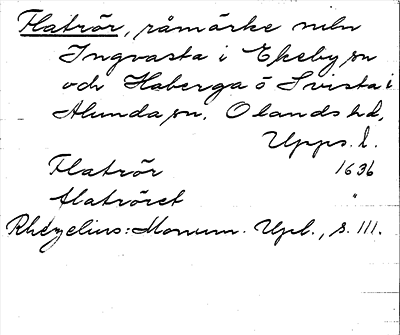 Flatrör, råmärke meln
Ingvasta i Ekeby sn
och Haberga ö Svista i
Alunda sn. Olands hd,
Upps. l.
Flatrör 1636
flatröret "
Rhezelius: Monum. Upl., s. 111.